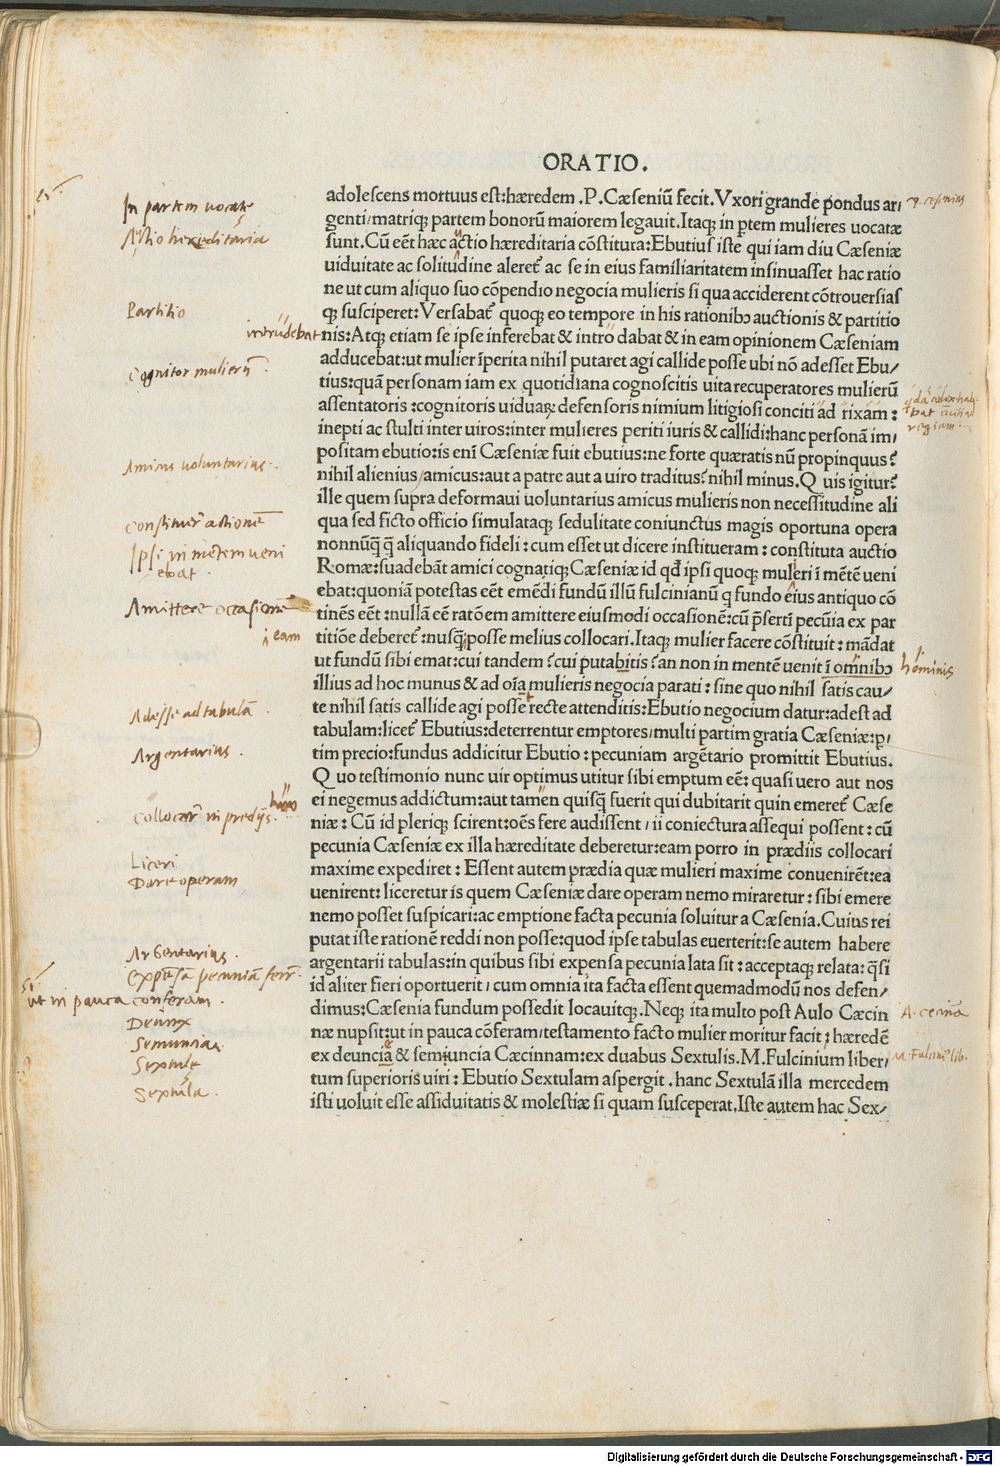 ORATIO.
adolescens mortuus est:hæredem .P.Cæseniū fecit.Vxori grande pondus ar/
genti/matriq; partem bonorū maiorem legauit.Itaq; in ꝑtem mulieres uocatæ
sunt.Cū eēt hæc actio hæreditaria cōstituta:Ebutius iste qui iam diu Cæseniæ
uiduitate ac solitudine aleret᷑ ac se in eius familiaritatem insinuasset hac ratio
ne ut cum aliquo suo cōpendio negocia mulieris si qua acciderent cōtrouersias
q; susciperet:Versabat᷑ quoq; eo tempore in his rationibꝰ auctionis & partitio
nis:Atq; etiam se ipse inferebat & intro dabat & in eam opinionem Cæseniam
adducebat:ut mulier īperita nihil putaret agi callide posse ubi nō adesset Ebu/
tius:quā personam iam ex quotidiana cognoscitis uita recuperatores mulierū
assentatoris :cognitoris uiduaꝝ defensoris nimium litigiosi conciti ad rixam :
inepti ac stulti inter uiros:inter mulieres periti iuris & callidi:hanc personā im/
positam ebutio:is enī Cæseniæ fuit ebutius:ne forte quæratis nū propinquus?
nihil alienius/amicus:aut a patre aut a uiro traditus?nihil minus.Q uis igitur?
ille quem supra deformaui uoluntarius amicus mulieris non necessitudine ali
qua sed ficto officio simulataq; sedulitate coniunctus magis oportuna opera
nonnūq̄ q̄ aliquando fideli : cum esset ut dicere institueram : constituta auctio
Romæ:suadebāt amici cognatiq;Cæseniæ id qd̄ ipsi quoq; mulieri ī mētē ueni
ebat:quoniā potestas eēt emēdi fundū illū fulcinianū q fundo eius antiquo cō
tinēs eēt :nullā eē ratōem amittere eiusmodi occasionē:cū p̄serti pecūia ex par
titiōe deberet᷑:nusq̄;posse melius collocari.Itaq; mulier facere cōstituit : mādat
ut fundū sibi emat:cui tandem ?cui putabitis ?an non in mentē uenit ī omnibꝰ
illius ad hoc munus & ad oīa mulieris negocia parati : sine quo nihil satis cau/
te nihil satis callide agi posse recte attenditis:Ebutio negocium datur:adest ad
tabulam:licet᷑ Ebutius:deterrentur emptores/multi partim gratia Cæseniæ:ꝑ/
tim precio:fundus addicitur Ebutio : pecuniam argētario promittit Ebutius.
Q uo testimonio nunc uir optimus utitur sibi emptum eē: quasi uero aut nos
ei negemus addictum:aut tamen quisq̄ fuerit qui dubitarit quin emeret᷑ Cæse
niæ : Cū id pleriq; scirent:oēs fere audissent / ii coniectura assequi possent : cū
pecunia Cæseniæ ex illa hæreditate deberetur:eam porro in prædiis collocari
maxime expediret : Essent autem prædia quæ mulieri maxime conuenirēt:ea
uenirent: liceretur is quem Cæseniæ dare operam nemo miraretur : sibi emere
nemo posset suspicari:ac emptione facta pecunia soluitur a Cæsenia.Cuius rei
putat iste rationē reddi non posse:quod ipse tabulas euerterit:se autem habere
argentarii tabulas:in quibus sibi expensa pecunia lata sit : acceptaq; relata: q̄si
id aliter fieri oportuerit / cum omnia ita facta essent quemadmodū nos defen/
dimus:Cæsenia fundum possedit locauitq;.Neq; ita multo post Aulo Cæcin
næ nupsit:ut in pauca cōferam/testamento facto mulier moritur facit : hæredē
ex deuncia & semiuncia Cæcinnam:ex duabus Sextulis.M.Fulcinium liber/
tum superioris uiri : Ebutio Sextulam aspergit . hanc Sextulā illa mercedem
isti uoluit esse assiduitatis & molestiæ si quam susceperat.Iste autem hac Sex/
In partem uocatę
Actio hereditaria
Partitio
introrudebat
cognitor mulierū .
Amicus voluntarius .
constituer᷑ actionē
Ipsi in mētem ueni
ebat .
Amittere occasionē
eam
Adesse ad tabulā .
Argentarius .
collocar᷑ in predijs .
Liceri
Dare operam
Argentarius .
expēsā pecuniā ferr᷑ .
ut in pauca conferam .
Deunx
Semuncia .
Sextulę
Sextula .
hominis
A. cecina
M. Fulcini᷒ lib.
Digitalisierung gefördert durch die Deutsche Forschungsgemeinschaft - DFG